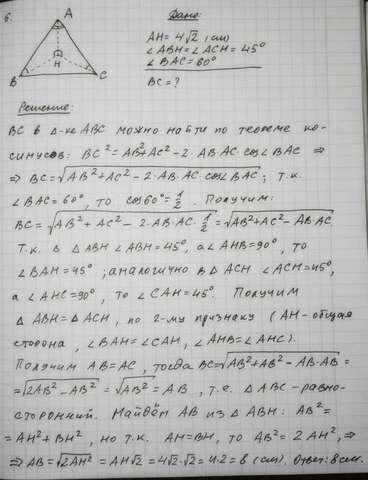 6.
A
B
H
C
Дано:
AH = 4√2 (см)
∠ABH = ∠ACH = 45°
∠BAC = 60°
BC = ?
Решение:
BC в Δ-ке ABC можно найти по теореме ко-
синусов: BC² = AB² + AC² - 2·AB·AC·cos∠BAC ⇒
⇒ BC = √AB² + AC² - 2·AB·AC·cos∠BAC; т.к.
∠BAC = 60°, то cos60° = 1/2. Получим:
BC = √AB² + AC² - 2·AB·AC·1/2 = √AB² + AC² - AB·AC
Т.к. в Δ ABH ∠ABH = 45°, а ∠AHB = 90°, то
∠BAH = 45°; аналогично в Δ ACH ∠ACH = 45°,
а ∠AHC = 90°, то ∠CAH = 45°. Получим
Δ ABH = Δ ACH, по 2-му признаку (AH - общая
сторона, ∠BAH = ∠CAH, ∠AHB = ∠AHC).
Получим AB = AC, тогда BC = √AB² + AB² - AB·AB =
= √2AB² - AB² = √AB² = AB, т.е. Δ ABC - равно-
сторонний. Найдём AB из Δ ABH: AB² =
= AH² + BH², но т.к. AH = BH, то AB² = 2AH², ⇒
⇒ AB = √2AH² = AH√2 = 4√2·√2 = 4·2 = 8 (см). Ответ: 8 см.